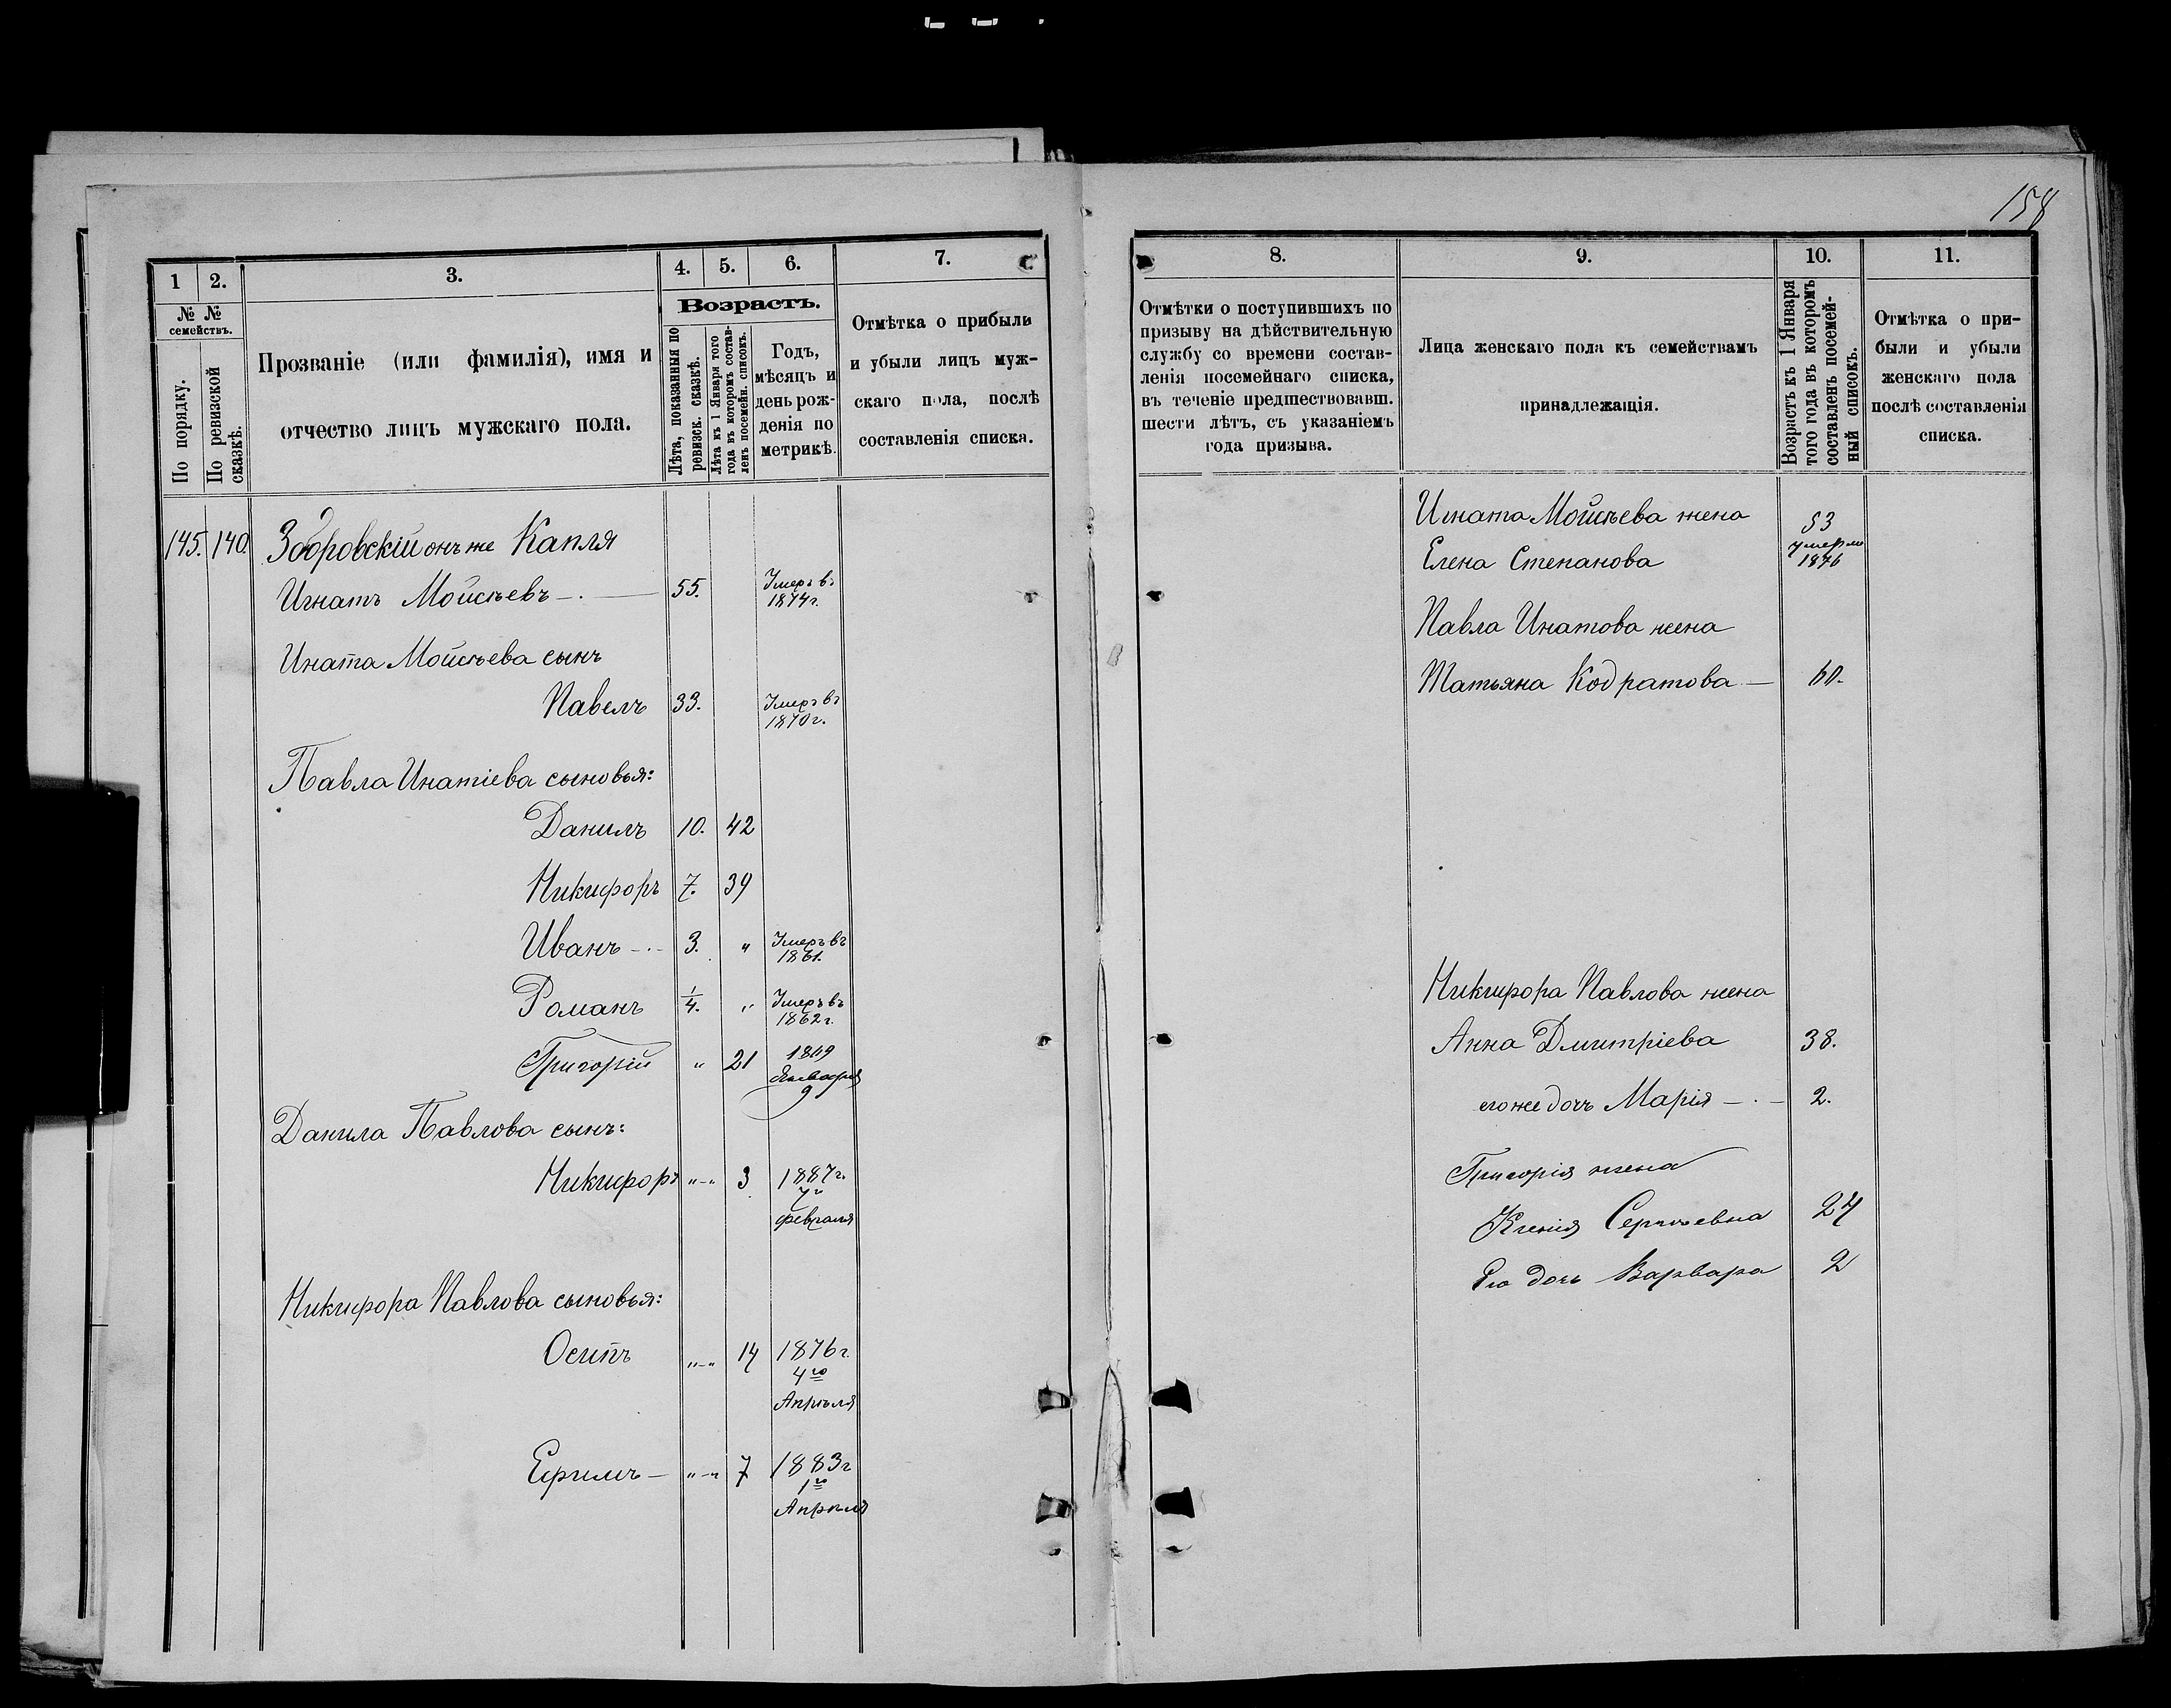 158
1
2.
3.
4.
5.
6.
7.
№ №
семействъ.
По порядку.
По ревизской
сказкѣ.
Прозваніе (или фамилія), имя и
отчество лицъ мужскаго пола.
Возрастъ.
Лѣта, показанныя по
ревизск. сказкѣ.
Лѣта къ 1 Января того
года въ которомъ состав-
ленъ посемейн. список.
Годъ,
мѣсяцъ и
день рож-
денія по
метрикѣ.
Отмѣтка о прибыли
и убыли лицъ муж-
скаго пола, послѣ
составленія списка.
145. 140. Зборовскій онъ же Капля
Игнатъ Мойсѣевъ 55. Умеръ въ
1874 г.
Игната Мойсѣева сынъ
Павелъ 33. Умеръ въ
1870 г.
Павла Игнатіева сыновья:
Данилъ 10. 42
Никифоръ 7. 39
Иванъ 3. " Умеръ въ
1861.
Романъ 1/4. " Умеръ въ
1862 г.
Григорій " 21 1869
Января
9
Данила Павлова сынъ:
Никифоръ "-" 3 1887 г.
7 г
февраля
Никифора Павлова сыновья:
Осипъ "-" 14 1876 г.
4го
Апрѣля
Ефимъ "-" 7 1883 г
1го
Апрѣля
8.
9.
10.
11.
Отмѣтки о поступившихъ по
призыву на дѣйствительную
службу со времени состав-
ленія посемейнаго списка,
въ теченіе предшествовавш.
шести лѣтъ, съ указаніемъ
года призыва.
Лица женскаго пола къ семействамъ
принадлежащія.
Возрастъ къ 1 Января
того года въ которомъ
составленъ посемей-
ный списокъ.
Отмѣтка о при-
были и убыли
женскаго пола
послѣ составленія
списка.
Игната Мойсѣева жена 53
Елена Степанова умерла
1876
Павла Игнатова жена
Татьяна Кодратова 60.
Никифора Павлова жена
Анна Дмитріева 38.
его же дочь Марія 2.
Григорія жена
Ксенія Сергѣевна 24
Его дочь Варвара 2